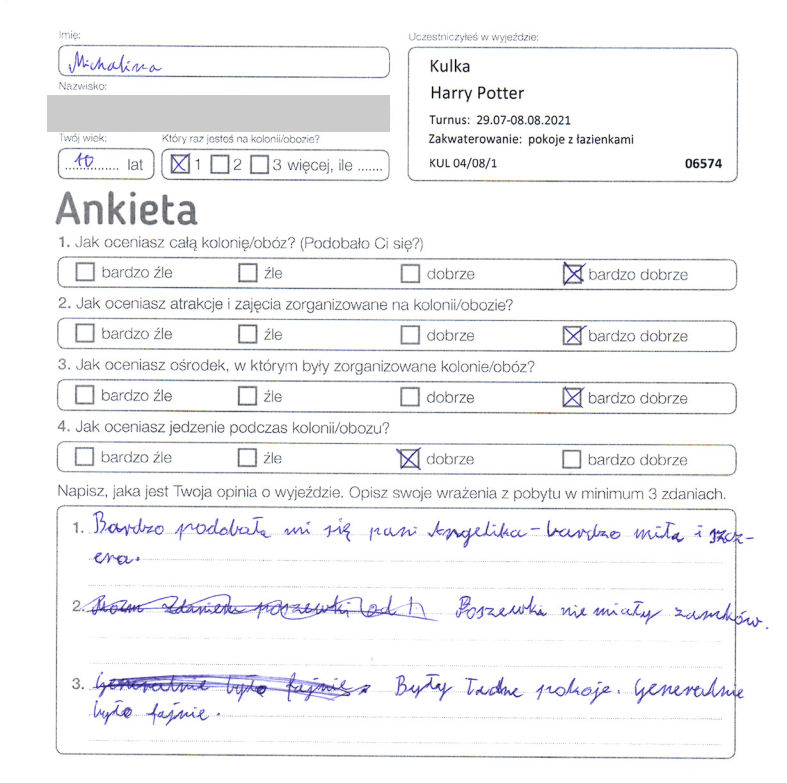 Imię:
Michalina
Uczestniczyłeś w wyjeździe:
Kulka
Harry Potter
Turnus: 29.07-08.08.2021
Zakwaterowanie: pokoje z łazienkami
KUL 04/08/1 06574
Nazwisko:
Twój wiek:
10 lat
Który raz jesteś na kolonii/obozie?
1 2 3 więcej, ile .......
Ankieta
1. Jak oceniasz całą kolonię/obóz? (Podobało Ci się?)
bardzo źle źle dobrze bardzo dobrze
2. Jak oceniasz atrakcje i zajęcia zorganizowane na kolonii/obozie?
bardzo źle źle dobrze bardzo dobrze
3. Jak oceniasz ośrodek, w którym były zorganizowane kolonie/obóz?
bardzo źle źle dobrze bardzo dobrze
4. Jak oceniasz jedzenie podczas kolonii/obozu?
bardzo źle źle dobrze bardzo dobrze
Napisz, jaka jest Twoja opinia o wyjeździe. Opisz swoje wrażenia z pobytu w minimum 3 zdaniach.
1. Bardzo podobała mi się pani Angelika – bardzo miła i szcz-
era.
2. zdaniem poszewki od Poszewki nie miały zamków.
3. Generalnie było fajnie. Były ładne pokoje. Generalnie
było fajnie.